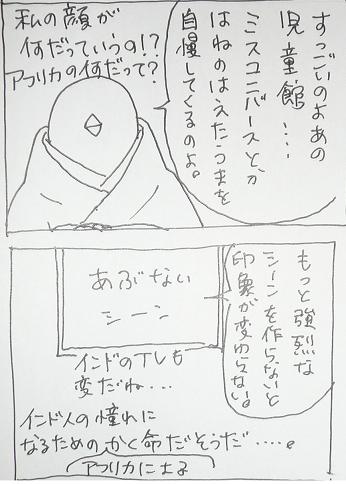 すっごいのよあの
児童館….
ミスユニバースとか
はねのはえたうまを
自慢してくるのよ。
私の顔が
何だっていうの!?
アフリカの何だって?
もっと強烈な
シーンを作らないと
印象が変わらない。
あぶない
シーン
インドのTVも
変だね…
インド人の憧れに
なるためのかく命だそうだ…..。
アフリカに士る